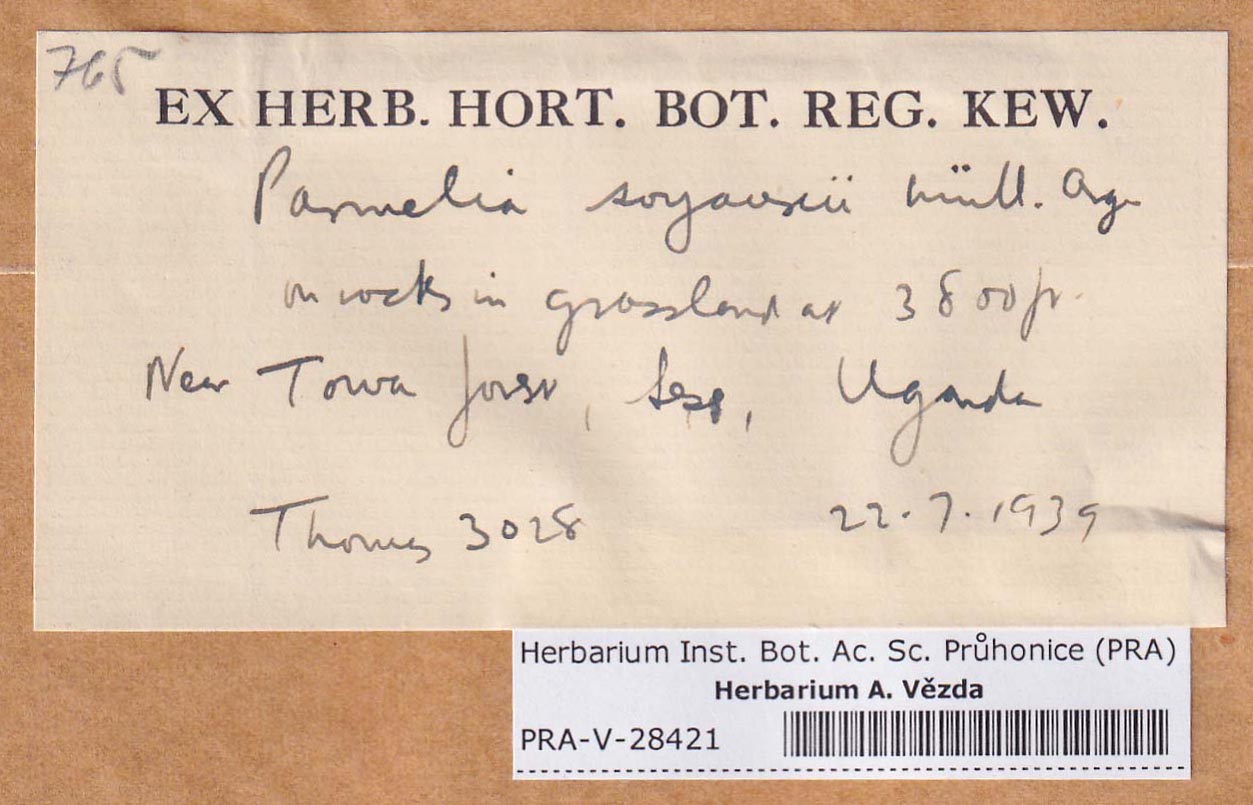 765
EX HERB. HORT. BOT. REG. KEW.
Parmelia soyauxii Müll. Arg.
on rocks in grassland at 3800 ft.
Near Towa forest, Sese, Uganda
Thomas 3028 22.7.1939
Herbarium Inst. Bot. Ac. Sc. Průhonice (PRA)
Herbarium A. Vězda
PRA-V-28421